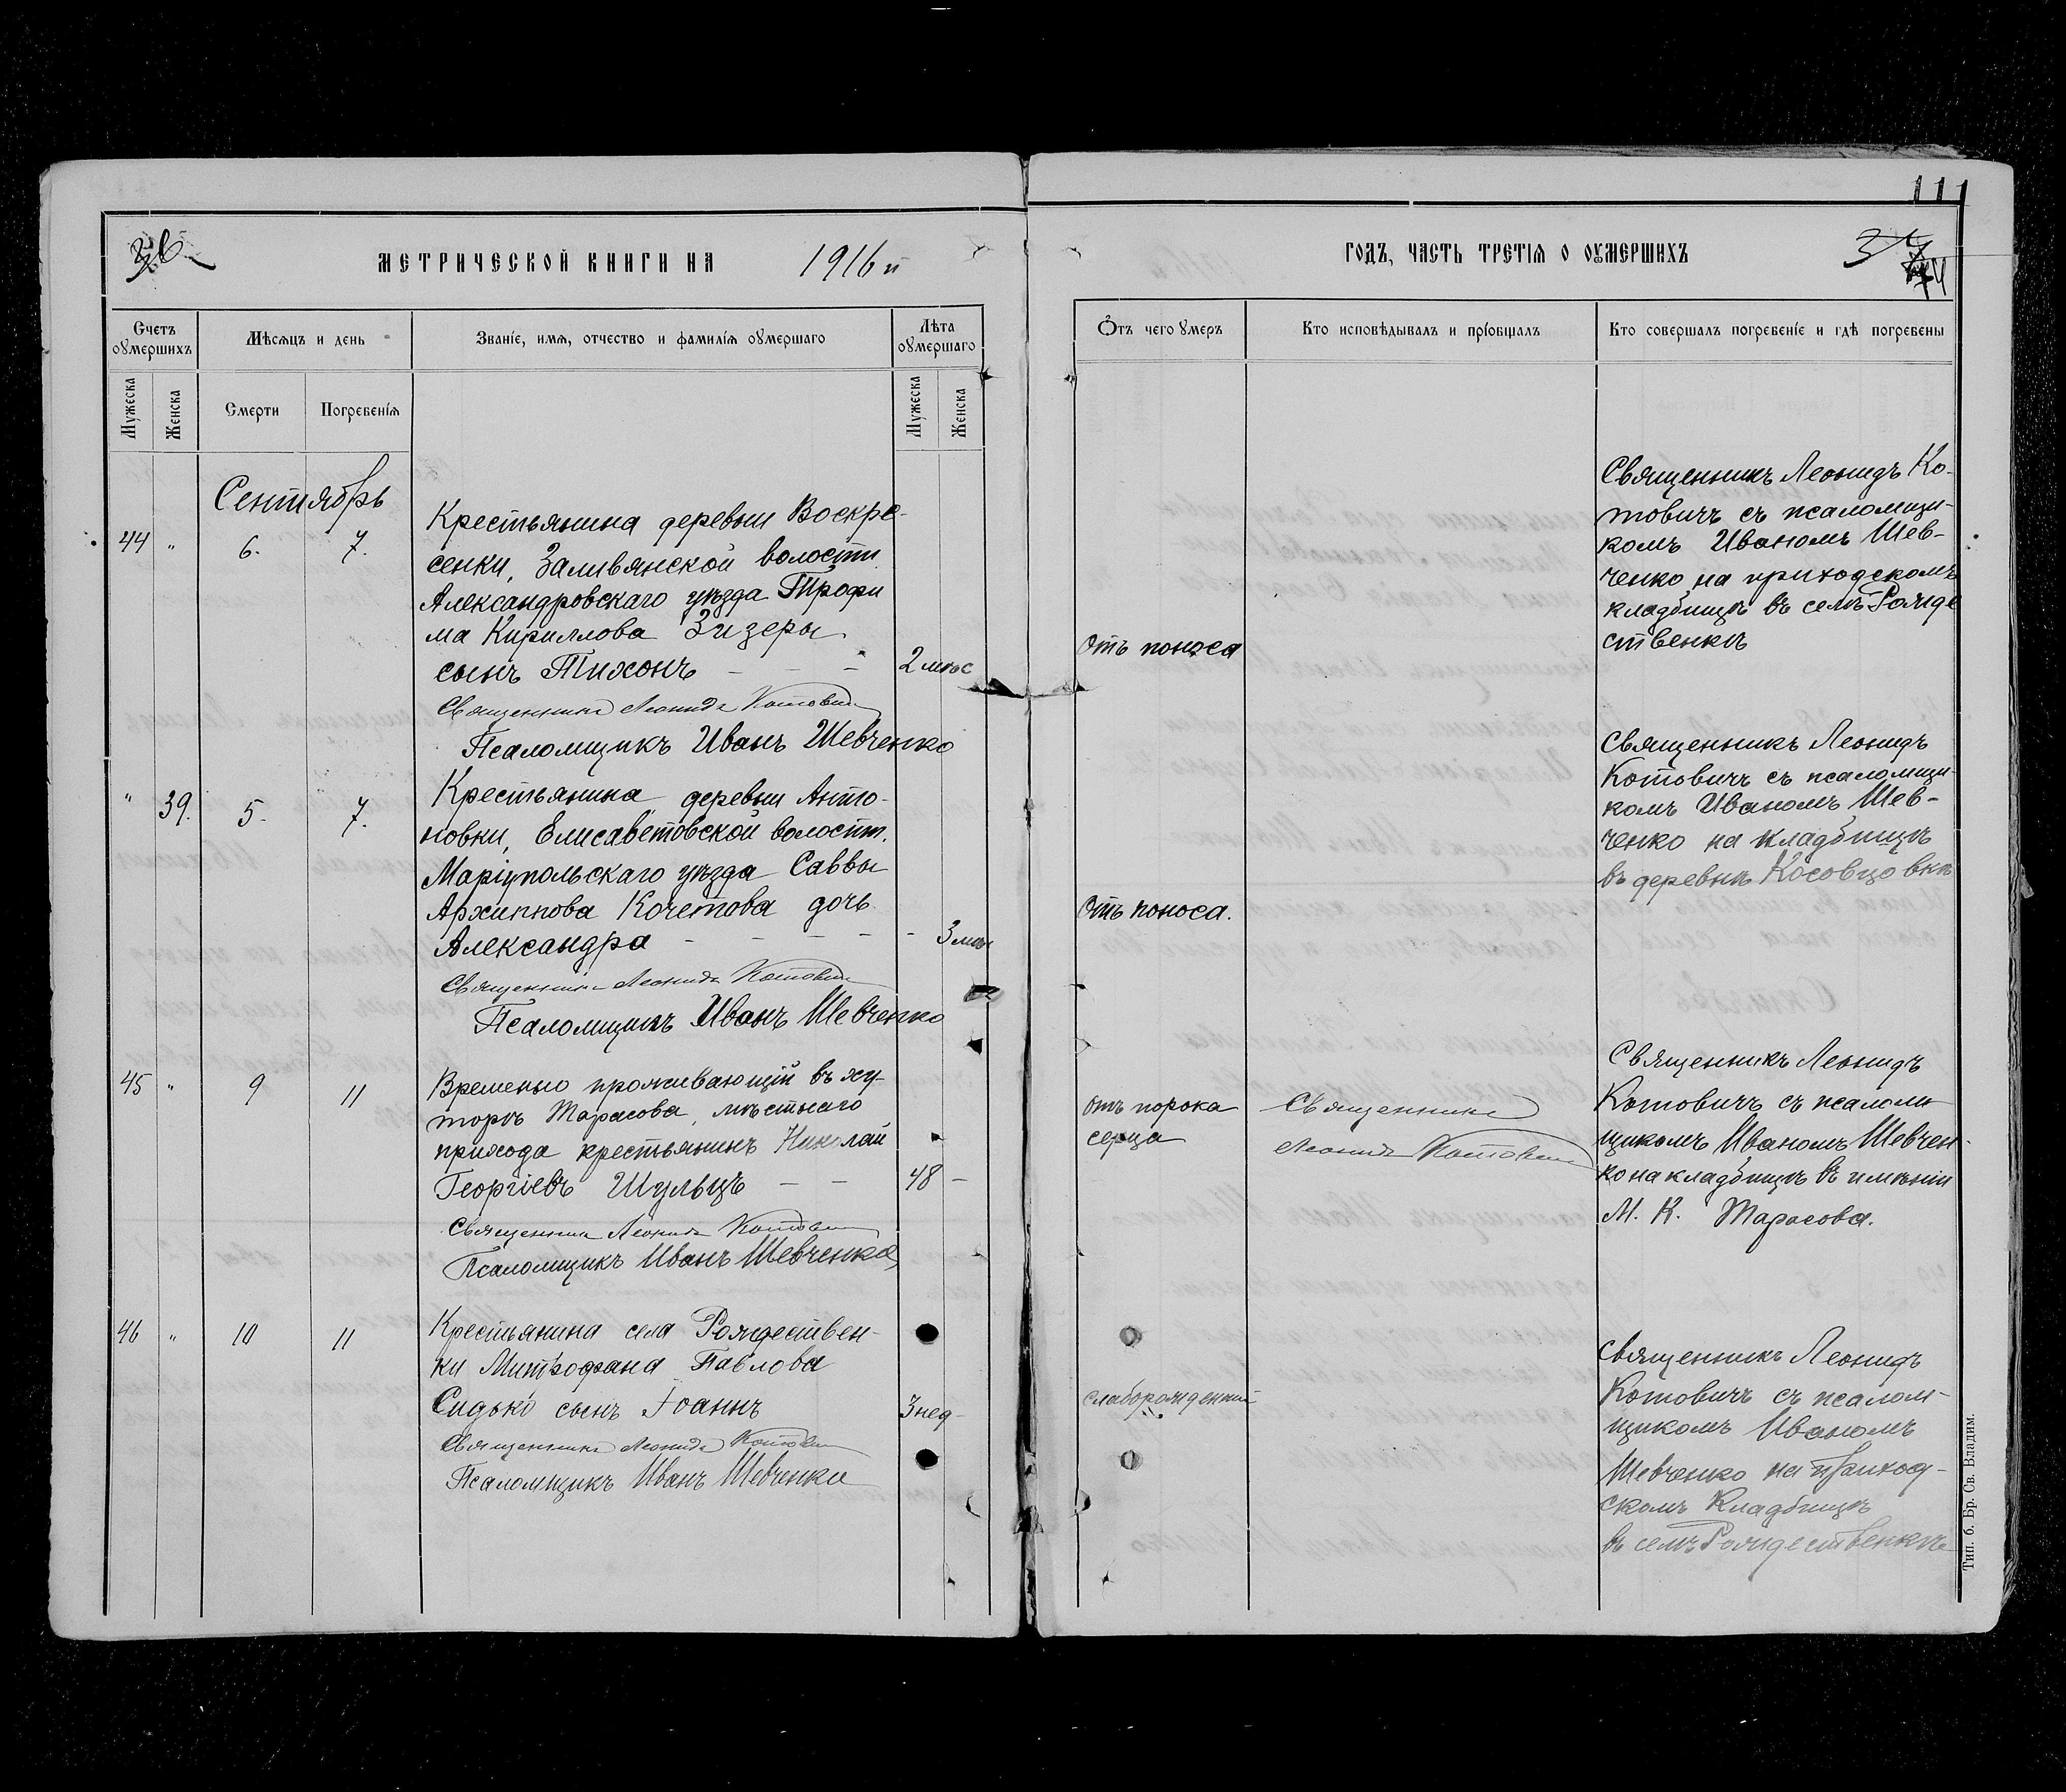 111
36
МЕТРИЧЕСКОЙ КНИГИ НА 1916 й
ГОДЪ, ЧАСТЬ ТРЕТІѦ О ОУМЕРШИХЪ
37
Счетъ оумершихъ
Мѣсѧцъ и день
Званіе, имѧ, отчество и фамиліѧ оумершаго
Лѣта оумершаго
Отъ чего умеръ
Кто исповѣдывалъ и пріобщалъ
Кто совершалъ погребеніе и гдѣ погребены
Мужеска
Женска
Смерти
Погребеніѧ
Мужеска
Женска
Сентябрь
44 " 6. 7.
Крестьянина деревни Воскре-
сенки, Заливянской волости
Александровскаго уѣзда Трофи
ма Кириллова Зизеры
сынъ Тихонъ - - -
2 мѣс
Священникъ Леонидъ Котович
Псаломщикъ Иванъ Шевченко
Отъ поноса
Священникъ Леонидъ Ко-
товичъ съ псаломщи-
комъ Иваномъ Шев-
ченко на приходскомъ
кладбищѣ въ селѣ Рожде
ственкѣ
" 39. 5. 7.
Крестьянина деревни Анто-
новки, Елисаветовской волост.
Маріупольскаго уѣзда Саввы
Архиппова Кочетова дочь
Александра - - - - -
3 мѣс
Священникъ Леонидъ Котович
Псаломщикъ Иванъ Шевченко
Отъ поноса.
Священникъ Леонидъ
Котовичъ съ псаломщи-
комъ Иваномъ Шев-
ченко на кладбищѣ
въ деревнѣ Косовцовкѣ
45 " 9 11
Временно проживающій въ ху-
торѣ Тарасова, мѣстнаго
прихода крестьянинъ Николай
Георгіевъ Шульцъ - -
48 -
Священникъ Леонидъ Котович
Псаломщикъ Иванъ Шевченко
отъ порока
серца
Священникъ
Леонидъ Котович
Священникъ Леонидъ
Котовичъ съ псалом
щикомъ Иваномъ Шевчен-
ко на кладбищѣ въ имѣніи
М. К. Тарасова.
46 " 10 11
Крестьянина села Рождествен-
ки Митрофана Павлова
Сидько сынъ Іоаннъ
3 нед -
Священникъ Леонидъ Котович
Псаломщикъ Иванъ Шевченко
слаборожденный
Священникъ Леонидъ
Котовичъ съ псалом-
щикомъ Иваномъ
Шевченко на приход-
скомъ кладбищѣ
въ селѣ Рождественкѣ
Тип. б. Бр. Св. Владим.